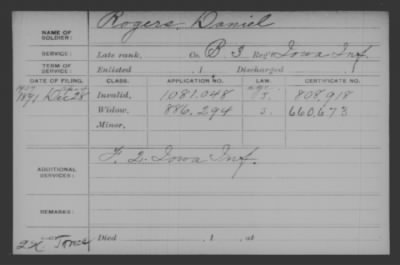 Rogers, Daniel
NAME OF SOLDIER:
SERVICE: Late rank, Co. B. 3 Reg't Iowa Inf.
TERM OF SERVICE: Enlisted , 1 Discharged , 1
DATE OF FILING. CLASS. APPLICATION NO. LAW. CERTIFICATE NO.
1891 Dec 28 Invalid, 1081,048 J. 808,918
Widow, 886,294 S. 660,673
Minor,
ADDITIONAL SERVICES: F. 2. Iowa Inf.
REMARKS:
Died , 1 , at